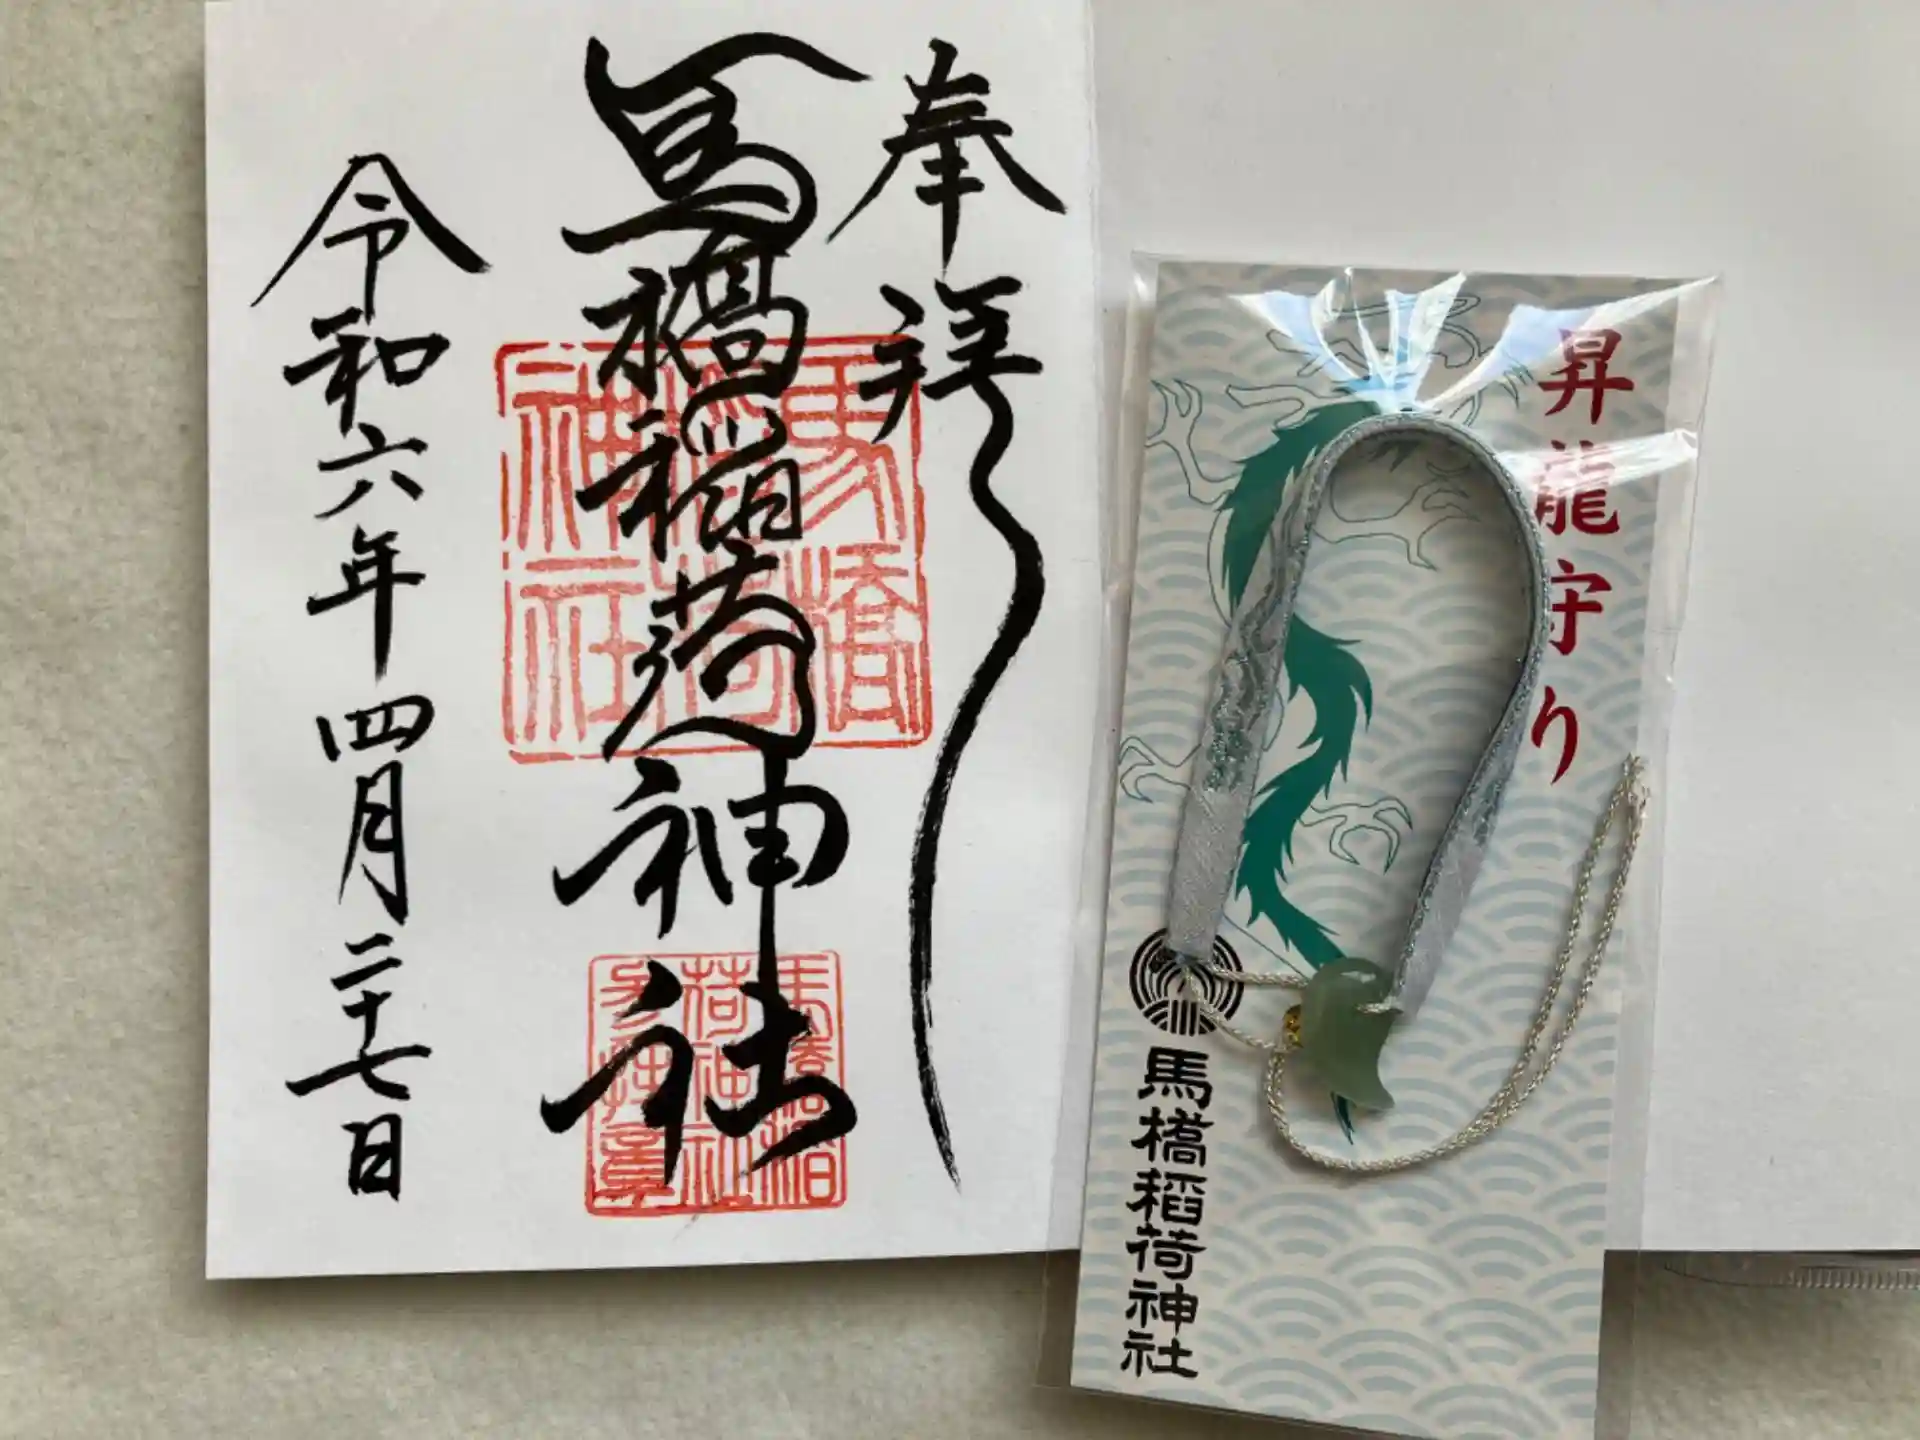 奉拝
馬橋稲荷神社
令和六年四月二十七日
馬橋
稲荷
神社
馬橋稲
荷神社
昇龍守り
馬橋稲荷神社